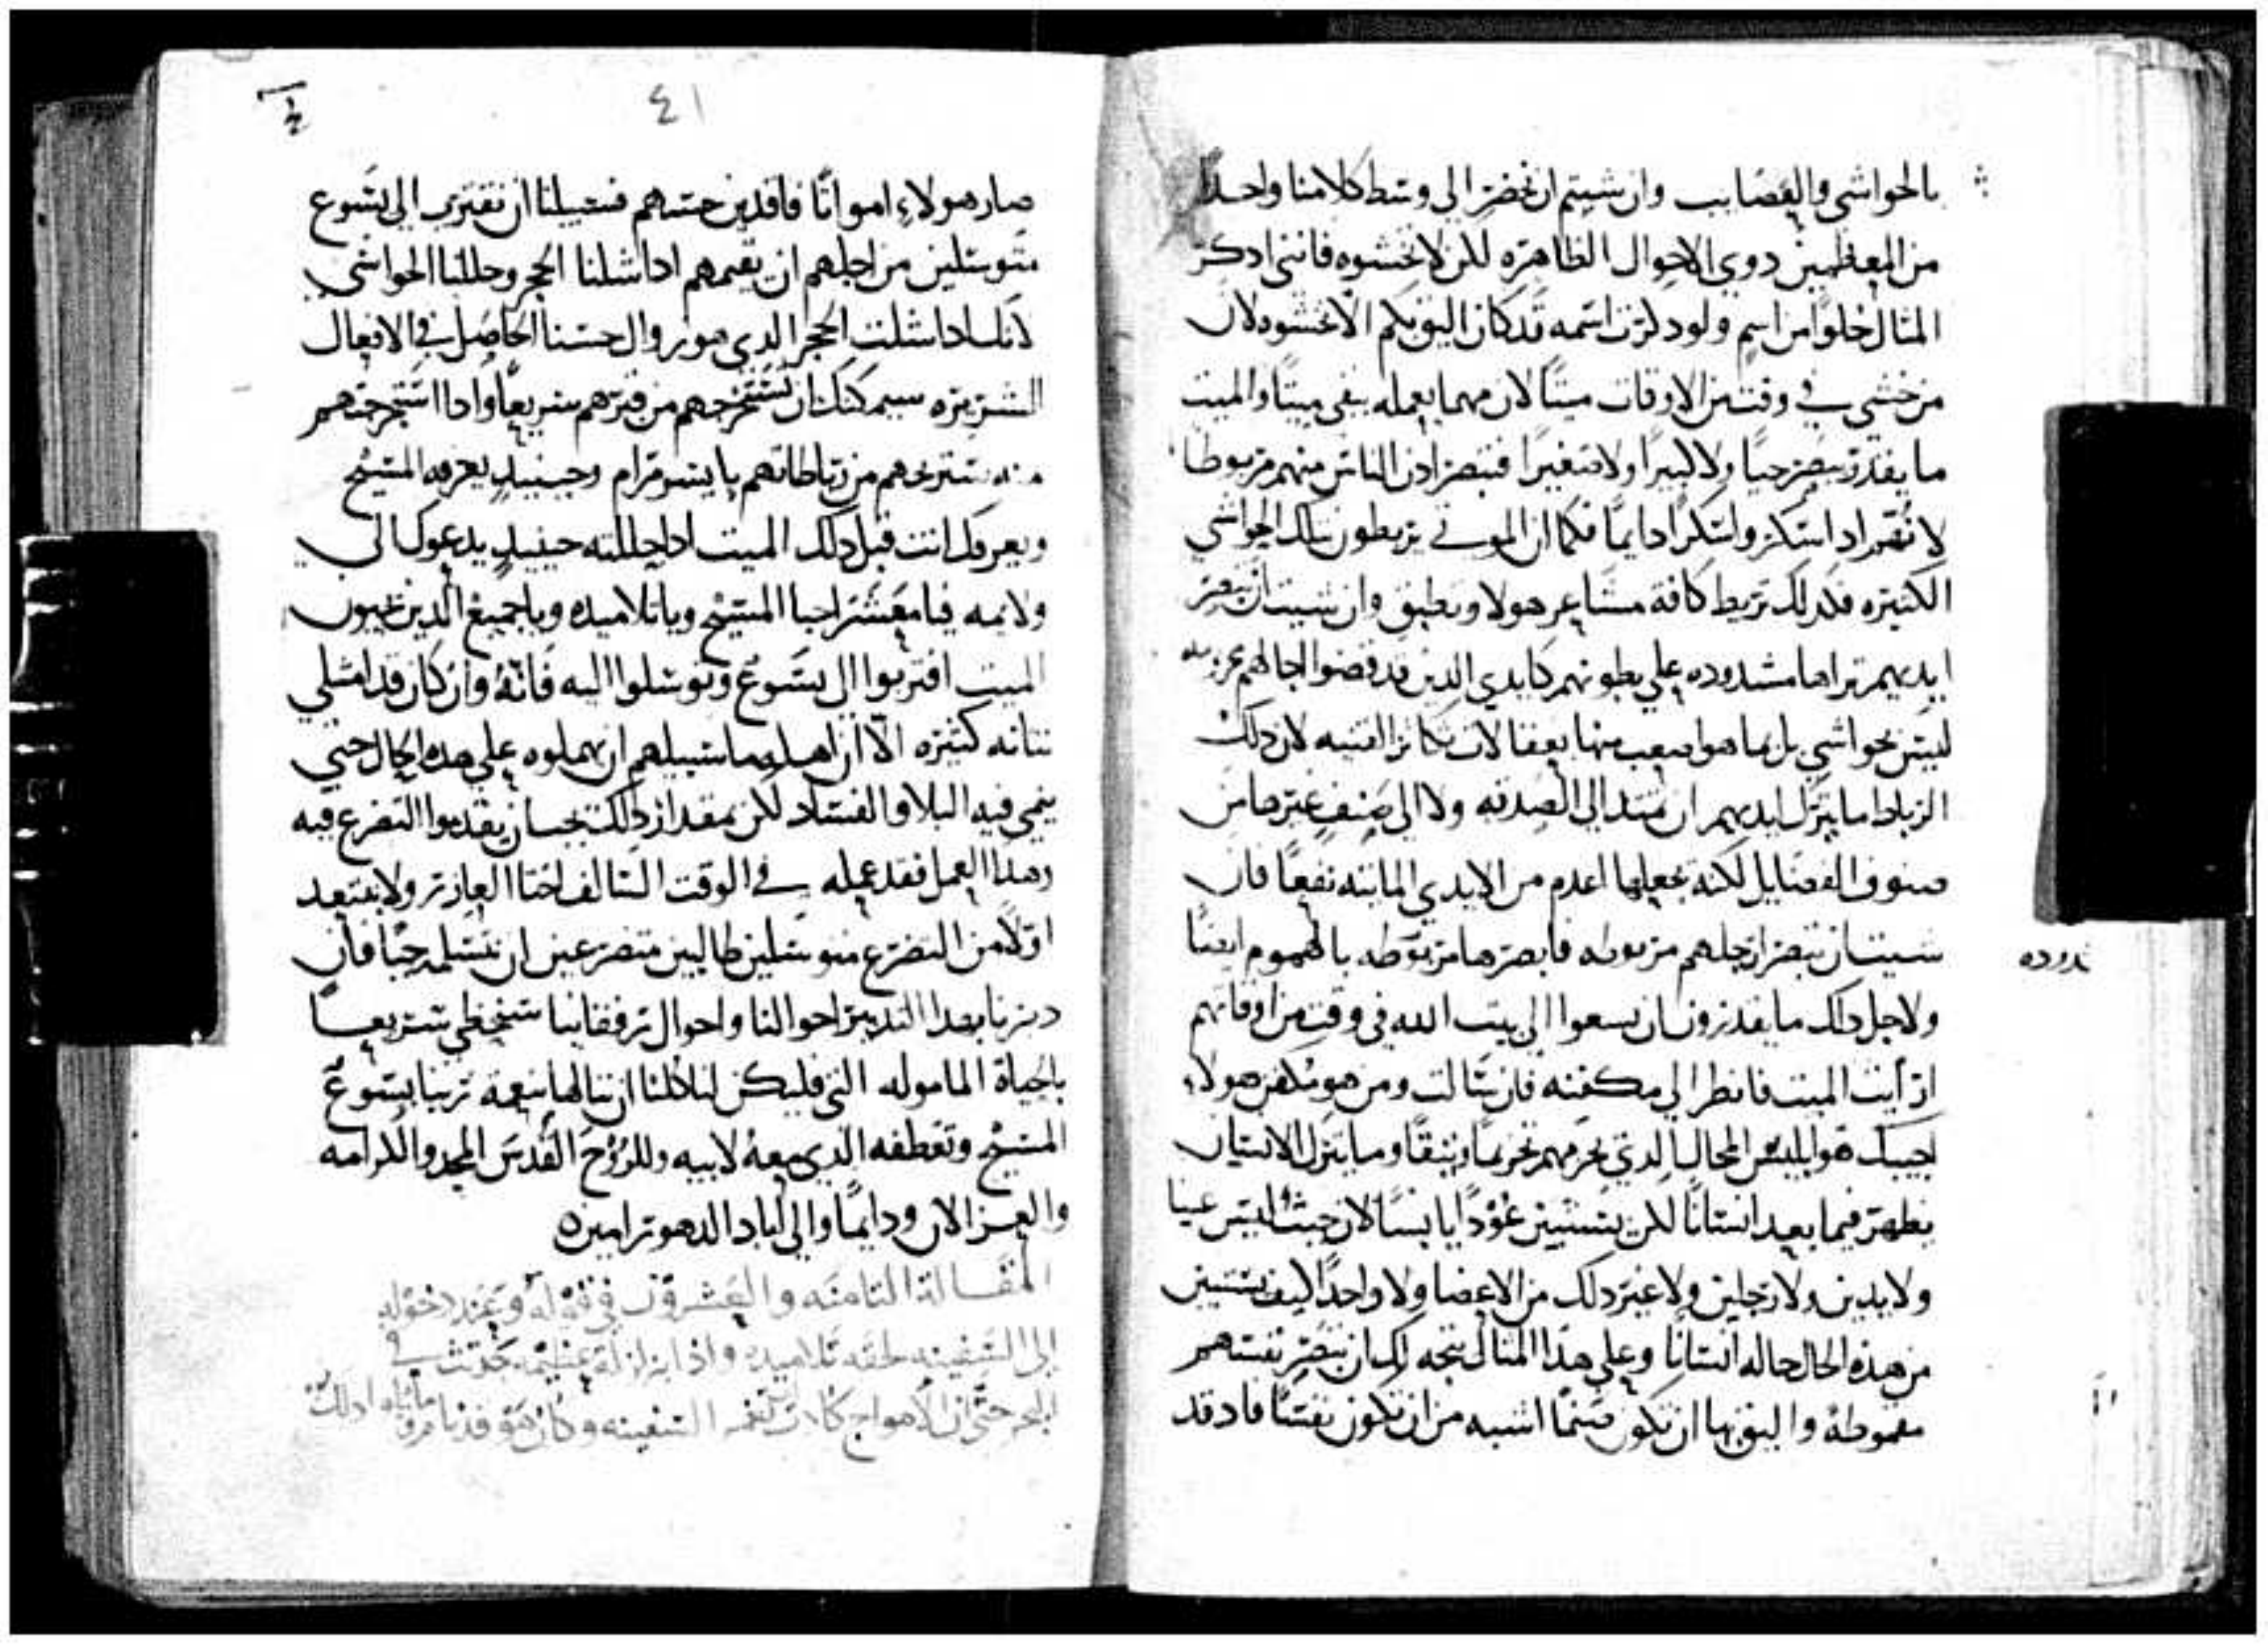 بالحواشي والعصايب وان شيتم ان نحضر الي وسط كلامنا واحدًا
من المعظمين دوي الاحوال الظاهره لكن لا تخشوه فانني ادكر
المثال خلوًا من اسم ولو دكرت اسمه قد كان اليق بكم الا تخشوه لان
من خشي في وقت من الاوقات ميتًا لان مهما يعمله يبقي ميتًا والميت
ما يقدر يبصر حيًا ولا كبيرًا ولا صغيرًا فتبصر ادن الناس منهم مربوطا
الكتيره فكدلك تربط كافة مشاعر هولا وتطبق وان شيت ان تبصر
ايديهم تراها مشدوده علي بطونهم كايدي الدين قد قضوا اجالهم
ليس بحواشي بل بما هو اصعب منها بعقالات تكاثر القنيه لان دلك
الرباط ما يترك ايديهم ان تمتد الي الصدقه ولا الي صنف غيرها من
صنوف الفضايل لكنه يجعلها اعدم من الايدي المايته نفعًا فان
شيت ان تبصر ارجلهم مربوطه فابصرها مربوطه بالهموم ايضًا
ولاجل دلك ما يقدرون ان يسعوا الي بيت الله في وقت من اوقاتهم
ارأيت الميت فانظر الي مكفنه فان سالت ومن هو مكفن هولاء
اجيبك هو ابليس المحال الدي يحزمهم تحزيمًا وثيقًا وما يترك الانسان
يظهر فيما بعد انسانًا لكن يستبين عودًا يابسًا لان حيث ليس عينا
ولا يدين ولا رجلين ولا غير دلك من الاعضا ولا واحدًا كيف يستبين
من هذه الحال حاله انسانًا وعلي هذا المثال يتجه لك ان تبصر نفسهم
مقموطة واليق بها ان تكون صنمًا اشبه من ان تكون نفسًا فاد قد
دوده
٤١
صار هولاءِ امواتًا فاقدين حسهم فسبيلنا ان نقترب الي يسوع
متوسلين من اجلهم ان يقيمهم ادا شلنا الحجر وحللنا الحواشي
لانك ادا شلت الحجر الدي هو زوال حسنا الحاصل في الافعال
الشريره سيمكنك ان تستخرجهم من قبرهم سريعًا وادا استخرجتهم
منه ستريحهم من رباطاتهم بايسر مرام وحينيدٍ يعرفه المسيح
ويعرفك انت قبل دلك الميت ادا حللته حينيدٍ يدعوك الي
ولايمه فيا معشر احبا المسيح ويا تلاميده ويا جميع الدين تحبون
الميت اقتربوا الي يسوع وتوسلوا اليه فانهُ وان كان قد امتلي
نتانه كتيره الّا ان اهله ما سبيلهم ان يهملوه علي هده الحال حتي
ينمي فيه البلا والفساد لكن بمقدار دلك يجب ان يقدموا التضرع فيه
وهدا العمل فقد عمله في الوقت السالف اختا العازر ولا نبتعد
اولًا من التضرع متوسلين طالبين متضرعين ان نتسلمه حيًا فان
دبرنا بهدا التدبير احوالنا واحوال رفقاينا سنحظي سريعًا
بالحياة الماموله التي فليكن لنا كلنا ان ننالها بنعمة ربنا يسوع
المسيح وتعطفه الدي معهُ لابيه وللروح القدس المجد والكرامه
والعز الان ودايمًا والي اباد الدهور امين
المقالة التامنه والعشرون في قوله وعند دخوله
الي السفينه لحقه تلاميده واذا بزلزلة عظيمه حدثت في
البحر حتي ان الامواج كادت تغمر السفينه وكان هو قد نام